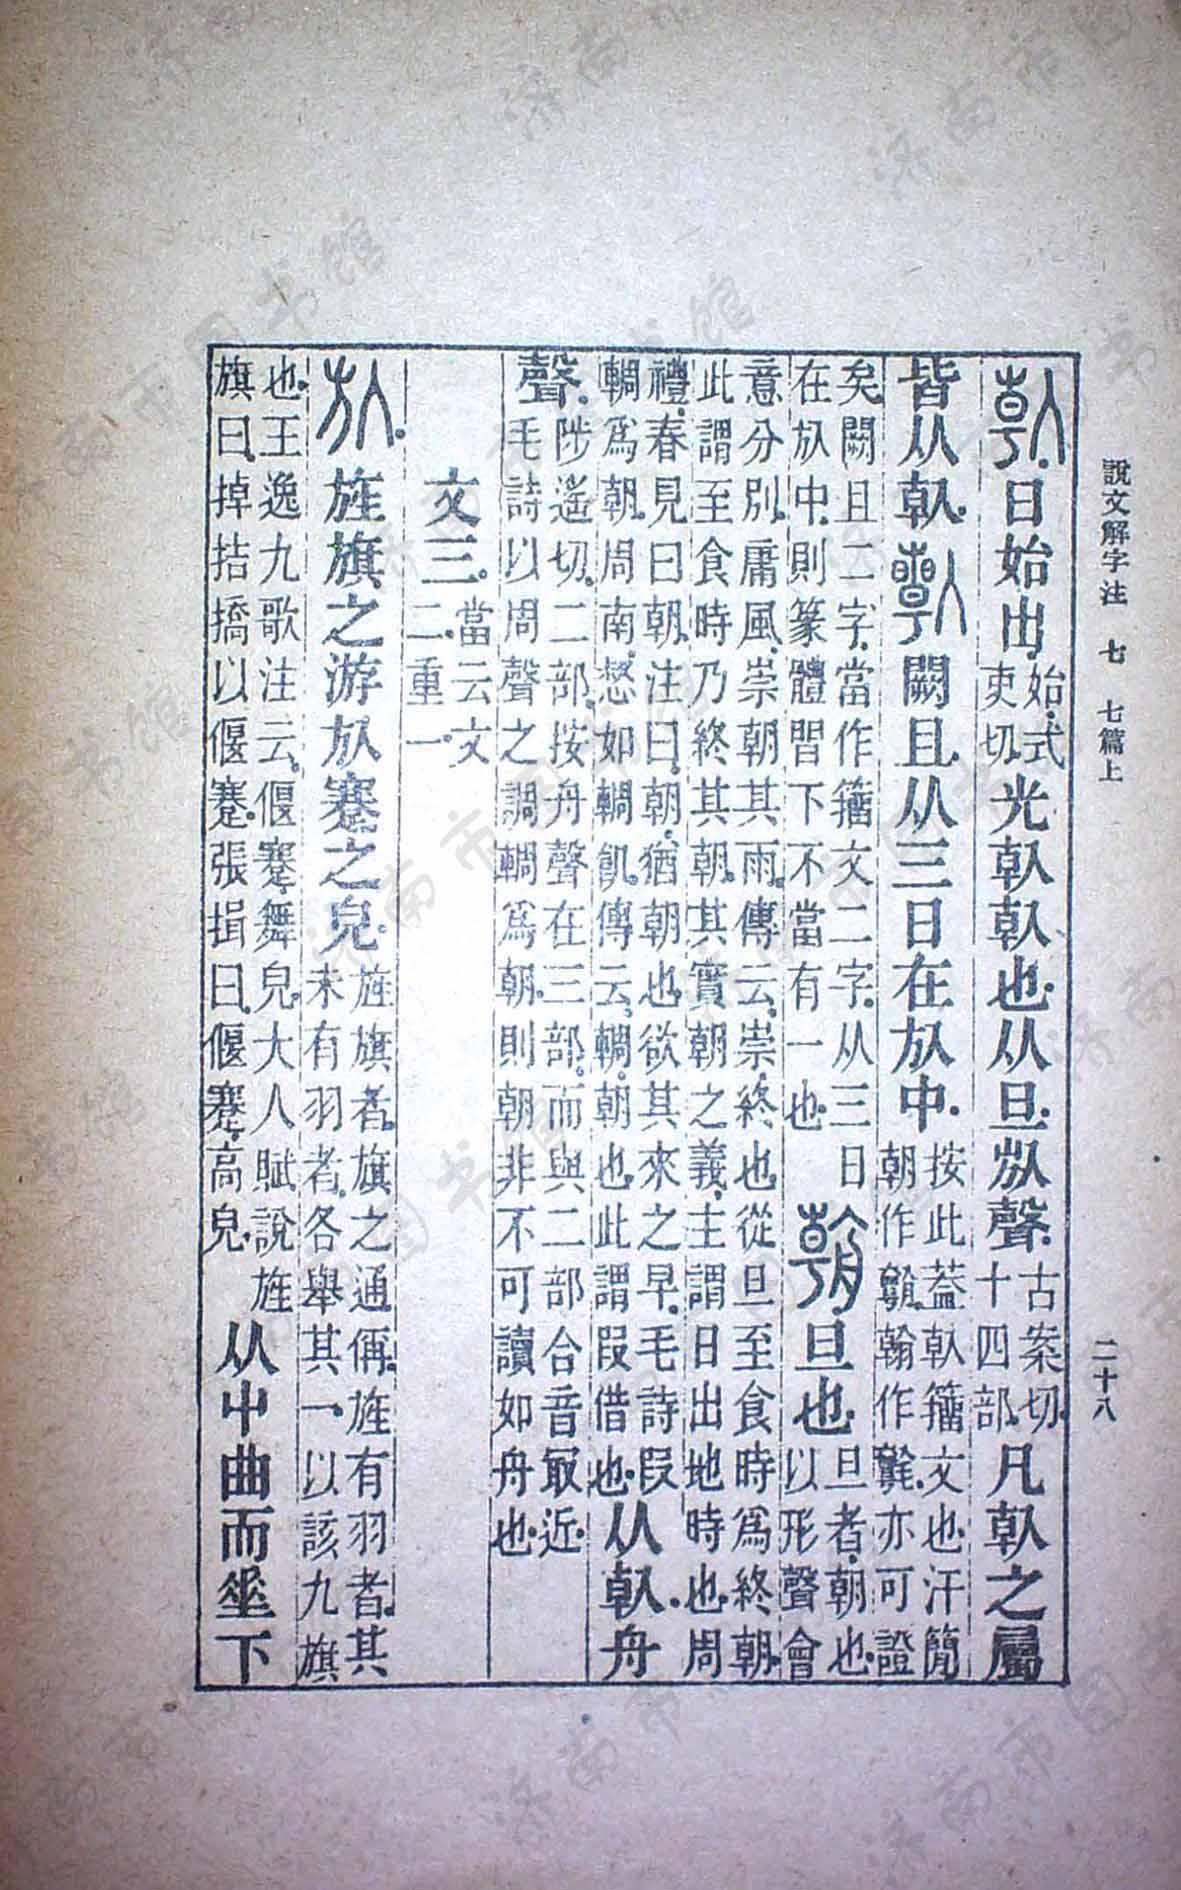 說文解字注 七 七篇上 二十八
倝.日始出.始.式吏切.光倝倝也.从旦㫃聲.古案切.十四部.凡倝之屬
皆从倝.闕且从三日在㫃中.按此葢倝籒文也汗簡朝作翰作亦可證
矣.闕且二字.當作籒文二字.从三日在㫃中.則篆體下不當有一也.旦也.旦者.朝也.以形聲會
意分別.庸風.崇朝其雨.傳云.崇.終也從旦至食時爲終朝.此謂至食時乃終其朝.其實朝之義.主謂日出地時也.周
禮.春見曰朝.注曰.朝.猶朝也欲其來之早.毛詩叚輖爲朝.周南.惄如輖飢.傳云.輖.朝也此謂叚借也.从倝.舟
聲.陟遙切.二部.按舟聲在三部.而與二部合音冣近.毛詩以周聲之調輖爲朝.則朝非不可讀如舟也.
文三.當云文二.重一.
㫃.旌旗之游㫃蹇之皃.旌旗者.旗之通偁.旌有羽者.其未有羽者.各舉其一.以該九旗
也.王逸九歌注云.偃蹇.舞皃.大人賦.說旌旗曰.掉拮撟以偃蹇.張揖曰.偃蹇.高皃.从屮曲而𠂹下